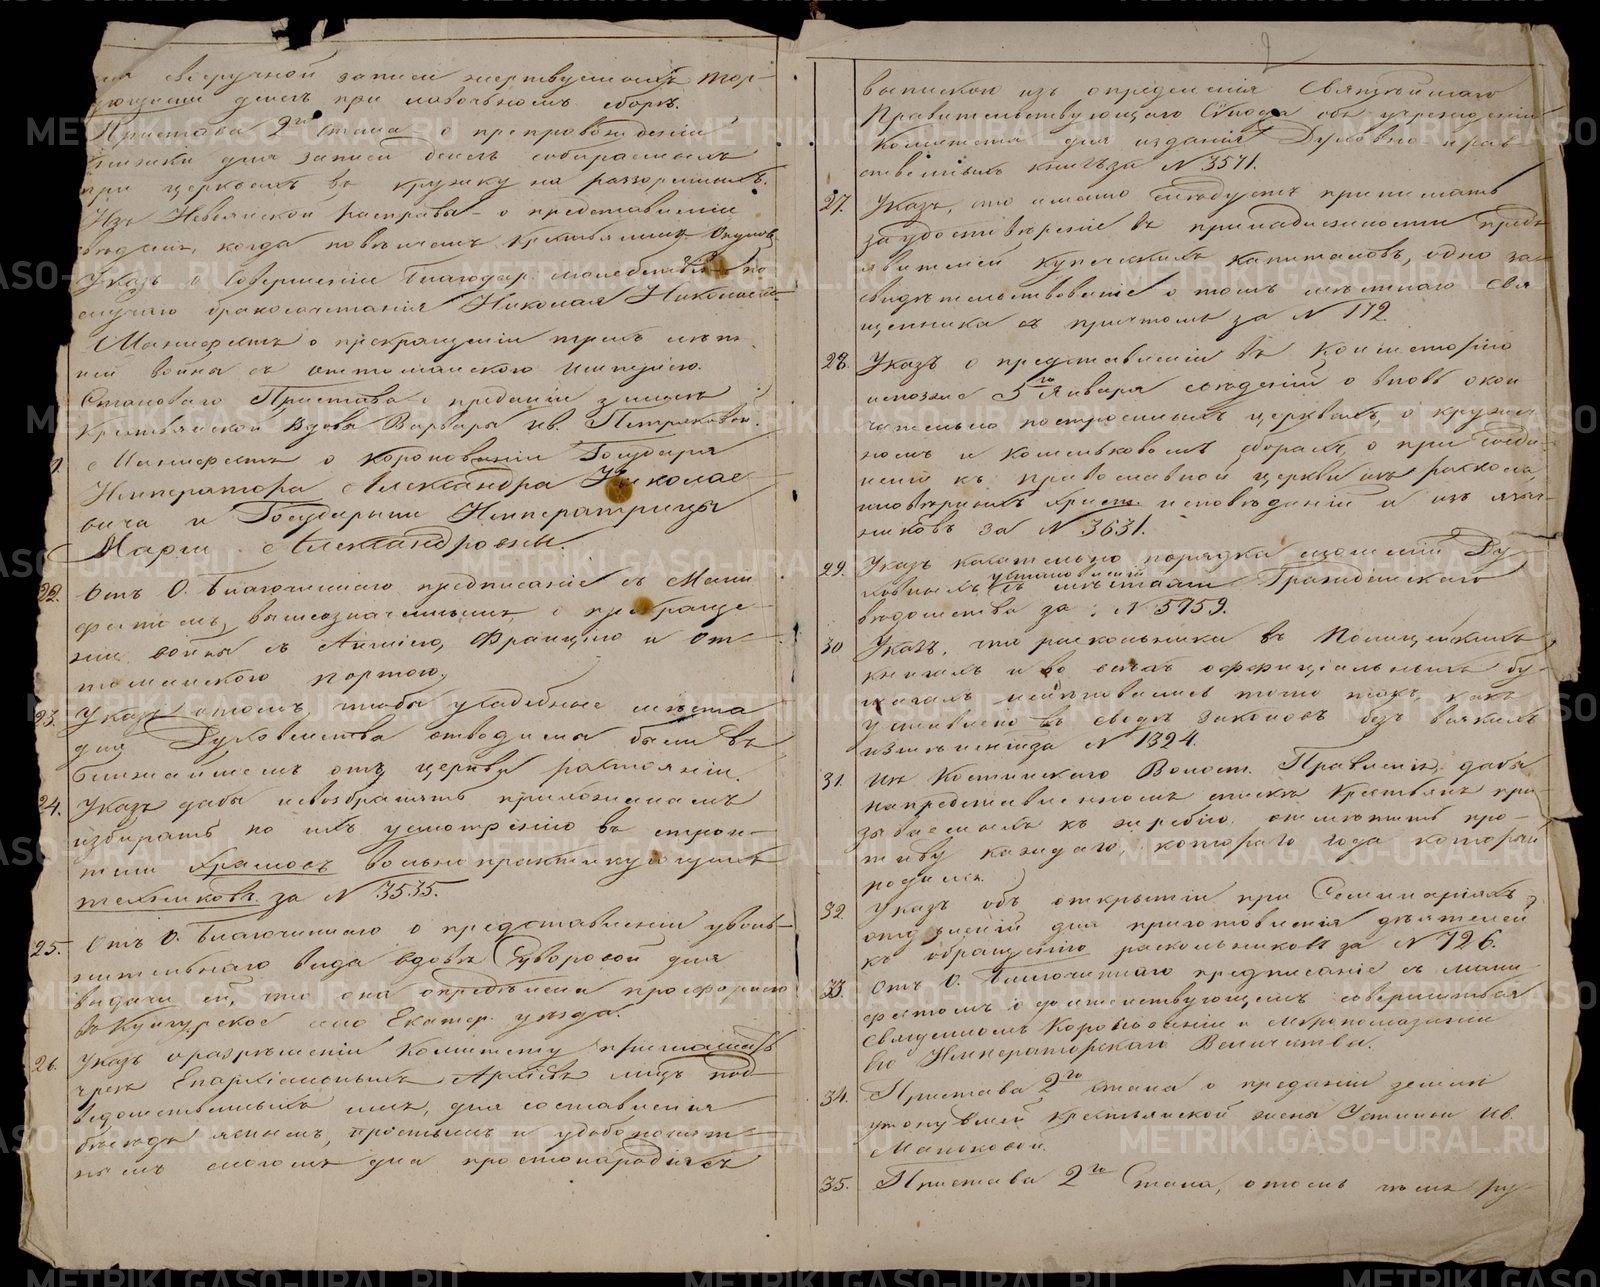 для своеручной записи жертвуемыхъ тор-
гующими денегъ при кошельномъ сборѣ.
Пристава 2го стана о препровожденіи
книжки для записи денегъ собираемыхъ
при церквахъ въ кружку на раззоренныхъ.
Изъ Невьянской расправы о представленіи
свѣдѣн. когда повѣнчанъ крестьянинъ Окуловъ
Указъ о совершеніи благодар. молебствія по
случаю бракосочетанія Николая Николаев.
Манифестъ о прекращеніи трехъ лѣт-
ней войны съ Оттоманскою имперіею.
Становаго Пристава о преданіи землѣ
крестьянской вдовы Варвары Ив. Петряковой.
Манифестъ о коронованіи Государя
Императора Александра Николае-
вича и Государыни Императрицы
Маріи Александровны.
22. Отъ О. Благочиннаго предписаніе съ Мани
фестомъ, вышеозначеннымъ, о прекраще-
ніи войны съ Англіею, Франціею и От-
томанскою портою.
23. Указъ о томъ, чтобы усадебные мѣста
для Духовенства отводимы были въ
ближайшемъ отъ церкви разстояніи.
24. Указъ дабы невозбранять прихожанамъ
избирать по ихъ усмотрѣнію въ строи-
тели храмовъ вольнопрактикующихъ
техниковъ. за N 3535.
25. Отъ О. Благочиннаго о представленіи уволь-
нительнаго вида вдовѣ Суворовой для
выдачи ей, что она опредѣлена просфорнею
въ Кунгурское село Екатер. уѣзда.
26. Указъ о разрѣшеніи Комитету приглашать
чрезъ Епархіальныхъ Архіер. лицъ под-
вѣдомственныхъ имъ, для составленія
бесѣдъ яснымъ, простымъ и удобопонят-
нымъ слогомъ для простонародія съ
выпискою изъ опредѣленія Святѣйшаго
Правительствующаго Сѵнода объ учрежденіи
Комитета для изданія Духовно нрав
ственныхъ книгъ за N 3571.
27. Указъ, что имѣю слѣдуетъ принимать
за удостовѣреніе въ принадлежности предъ
явителей купеческихъ капиталовъ, одно за-
свидѣтельствованіе о томъ мѣстнаго Свя
щенника съ причтомъ за N 172
28. Указъ о представленіи въ Консисторію
непозже 5го Января свѣдѣній о вновь окон
чательно построенныхъ церквахъ, о кружеч
номъ и кошельковомъ сборахъ, о присоеди-
неніи къ православной церкви изъ раскола
иновѣрныхъ христ. исповѣданій и изъ языч-
никовъ за N 3631.
29. Указъ касательно порядка сношеній Ду
ховныхъ съ установленіями мѣстами Гражданскаго
вѣдомства за N 5759.
30 Указъ, что раскольники въ Полицейскихъ
книгахъ и во всѣхъ оффиціальныхъ бу-
магахъ именовались точно такъ, какъ
установлено въ сводѣ законовъ безъ всякихъ
измѣненій за N 1324.
31. Изъ Костинскаго Волост. Правленія, дабы
на представленномъ спискѣ крестьянъ при-
зываемыхъ къ жребію отмѣтить про-
тиву каждаго, котораго года который
родился.
32. Указъ объ открытіи при Семинаріяхъ
отдѣленій для приготовленія дѣятелей
къ обращенію раскольниковъ за N 726.
33. Отъ О. Благочиннаго предписаніе съ мани
фестомъ о долженствующемъ совершиться
священномъ Коронованіи и Мѵропомазаніи
Его Императорскаго Величества.
34. Пристава 2го стана о преданіи землѣ
утонувшей крестьянской жены Устиньи Ив.
Маньковой.
35. Пристава 2го Стана, о томъ чтобы ру-